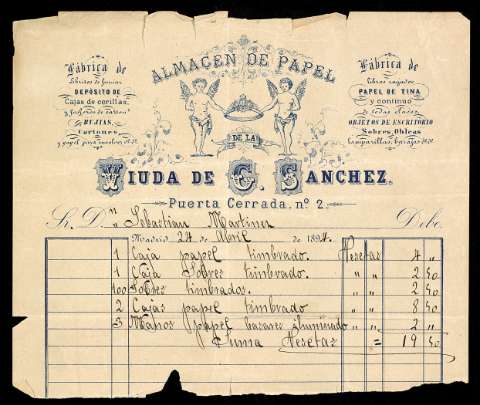 ALMACEN DE PAPEL
Fábrica de
Libritos de fumar
DEPÓSITO DE
Cajas de cerillas,
BUJIAS,
Cartones
y papel para envolver &.&.
Fábrica de
libros rayados
PAPEL DE TINA
y continuo
de todas clases
OBJETOS DE ESCRITORIO
Sobres, Obleas
Lamparillas, barajas &.&.
DE LA
VIUDA DE C. SANCHEZ.
Puerta Cerrada, nº 2.
Sr. Dn Sebastian Martinez Debe
Madrid 24 de Abril de 1894.
1 Caja papel timbrado. Pesetas 4 "
1 Caja Sobres timbrado. " " 2 50
100 Sobres timbrados. " " 2 50
2 Cajas papel timbrado " " 8 50
3 Manos papel iluminado " " 2 "
Suma Pesetas = 19 50